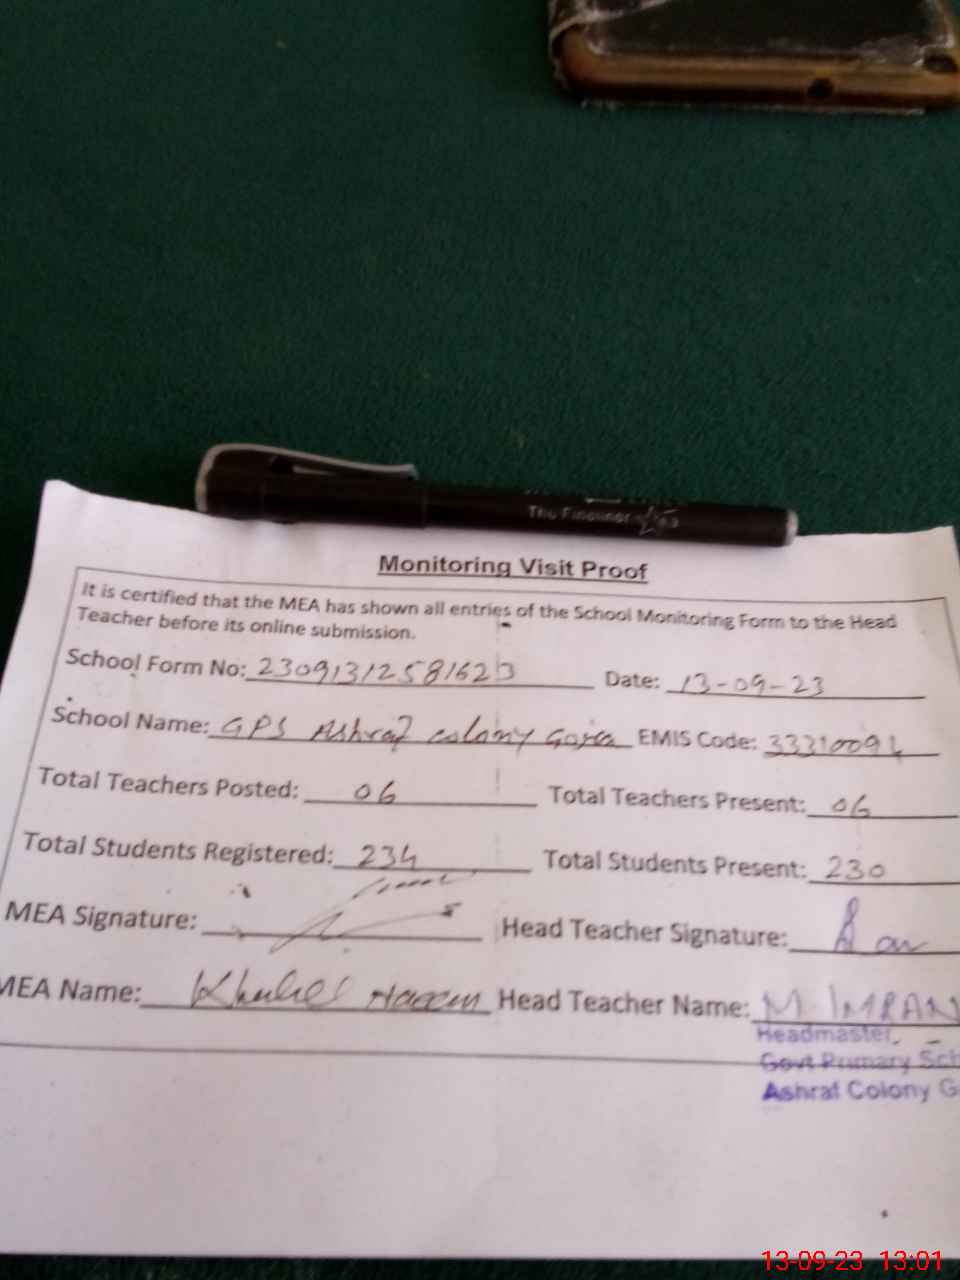 The Fineliner
Monitoring Visit Proof
It is certified that the MEA has shown all entries of the School Monitoring Form to the Head
Teacher before its online submission.
School Form No: Date: 13-09-23
School Name: GPS Ashraf colony Gojra EMIS Code:
Total Teachers Posted: 06 Total Teachers Present: 06
Total Students Registered: 234 Total Students Present: 230
MEA Signature: Head Teacher Signature:
MEA Name: Head Teacher Name: M. IMRAN
Headmaster,
Govt Primary Sch
Ashraf Colony G
13-09-23 13:01